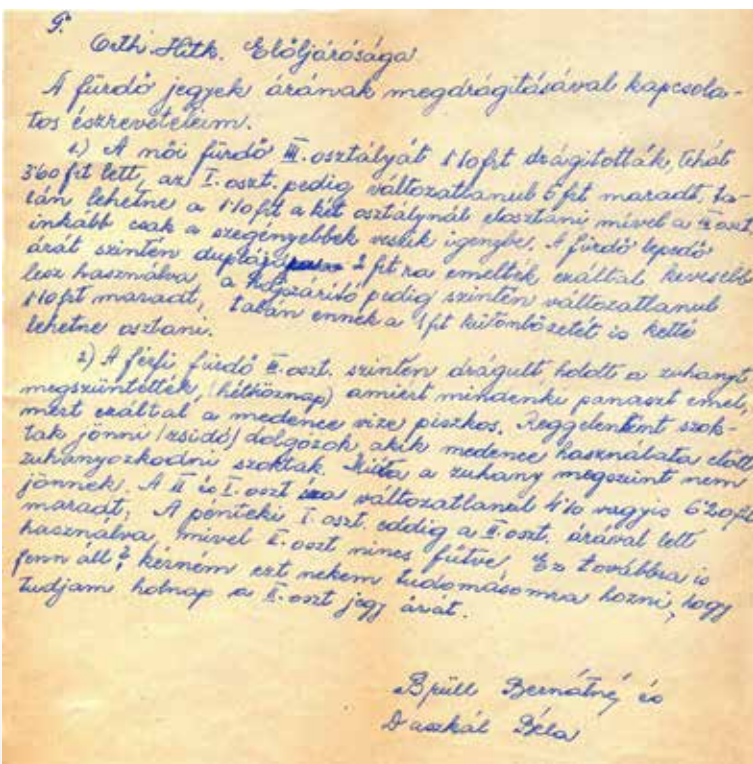 P.
Orth. Hitk. Elöljárósága
A fürdő jegyek árának megdrágitásával kapcsola-
tos észrevételeim.
1.) A női fürdő III. osztályát 1.10 frt drágitották, tehát
3'60 frt lett, az I. oszt. pedig változatlanul 5 frt maradt, ta-
lán lehetne a 1.10 frt a két osztálynál elosztani mivel a oszt.
inkább csak a szegényebbek veszik igenybe. A fürdő lepedő
árát szintén duplájá 2 frt ra emelték ezáltal kevesebb
lesz használva, a hajszáritó pedig szintén változatlanul
1.10 frt maradt, talán ennek a 1 frt különbözetét is ketté
lehetne osztani.
2.) A férfi fürdő II. oszt. szintén drágult, holott a zuhanyt
megszüntették, (hétköznap) amiért mindenki panaszt emel,
mert ezáltal a medence vize piszkos. Reggelenként szok-
tak jönni (zsidó) dolgozók, akik medence használata előtt
zuhanyozkodni szoktak. Mióta a zuhany megszünt nem
jönnek. A II és I. oszt ára változatlanul 4'10 vagyis 6'20 frt
maradt, A pénteki I. oszt. eddig a II. oszt. árával lett
használva, mivel II. oszt nincs fűtve, Ez továbbra is
fenn áll? kérném ezt nekem tudomásomra hozni, hogy
tudjam holnap a II. oszt jegy árát.
Brüll Bernátné és
Daszkál Béla